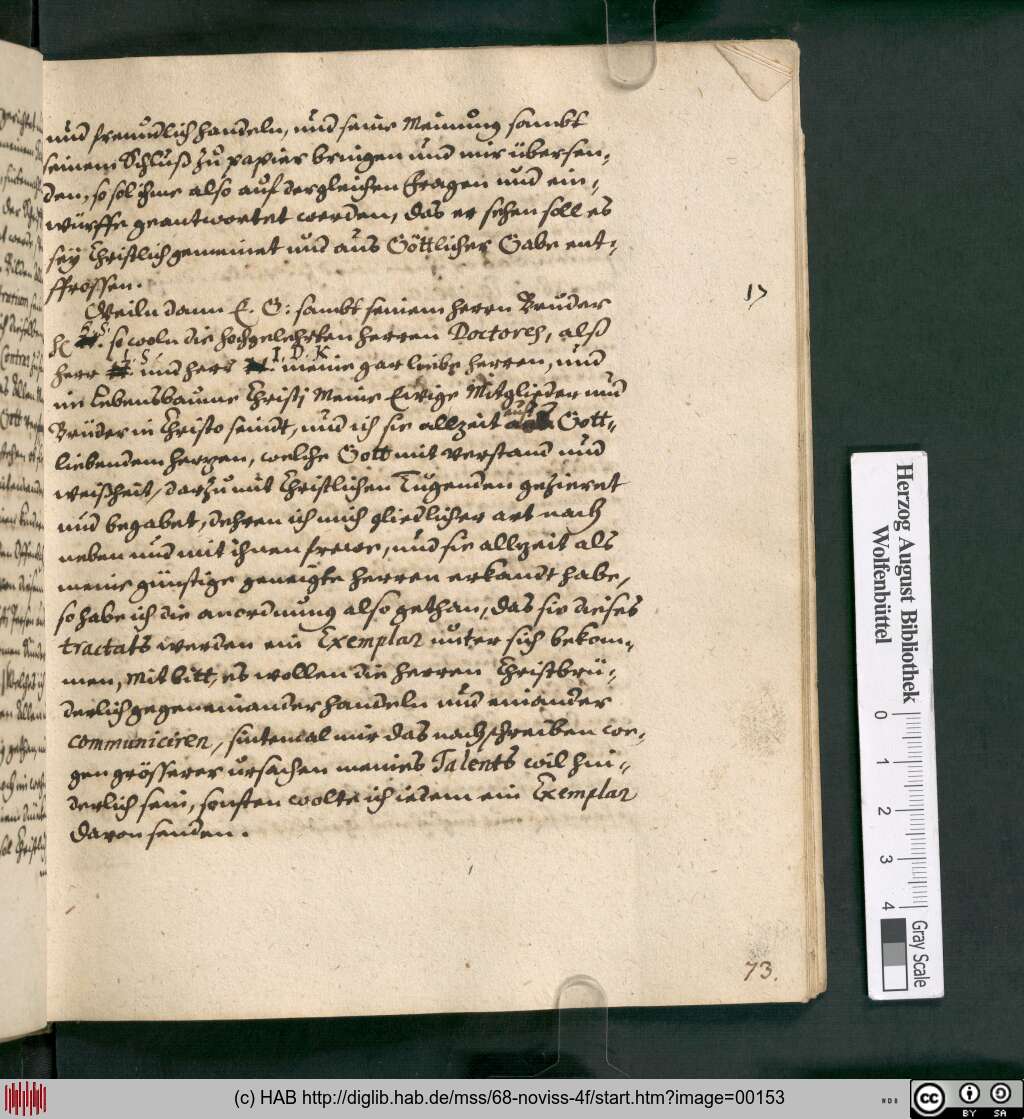 und freundlich handeln, und seine Meinung sambt
seinem Schluß zu papier bringen und mir übersen-
den, so sol ihme also auf dergleichen Fragen und ein-
würffe geantwortet werden, das er sehen soll es
sey Christlich gemeinet und aus Göttlicher Gabe ent-
sprossen.
Weiln dann E. G: sambt seinem herrn Bruder
H. S. so woln die hochgelehrten herren Doctores, alß
herr L. S. und herr I. D. K. meine gar liebe herren, und
im Lebensbaume Christi Meine Ewige Mitglieder und
Brüder in Christo seindt, und ich sie allzeit auß Gott-
liebendem herzen, welche Gott mit verstand und
weißheit, darzu mit Christlichen Tugenden gezieret
und begabet, dehren ich mich gliedlicher art nach
neben und mit ihnen frewe, und sie allezeit als
meine günstige geneigte herren erkandt habe,
so habe ich die anordnung also gethan, das sie dieses
tractats werden ein Exemplar unter sich bekom-
men, Mit bitt, es wollen die herren Christbrü-
derlich gegeneinander handeln und einander
communiciren, sintemal mir das nachschreiben we-
gen grösserer ursachen meines Talents wil hin-
derlich sein, sonsten wolte ich iedem ein Exemplar
davon senden.
73.
Herzog August Bibliothek
Wolfenbüttel
0 1 2 3 4
Gray Scale
(c) HAB http://diglib.hab.de/mss/68-noviss-4f/start.htm?image=00153
CC BY SA